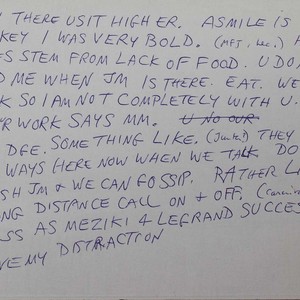 THERE USIT HIGHER. A SMILE IS
KEY I WAS VERY BOLD. (MFT, Lec.) A
ES STEM FROM LACK OF FOOD. U DON
D ME WHEN JM IS THERE. EAT. WE
K SO I AM NOT COMPLETELY WITH U.
R WORK SAYS MM. U NO OUR
DGE. SOMETHING LIKE. THEY
WAYS HERE NOW WHEN WE TALK DO
SH JM & WE CAN GOSSIP. RATHER L
NG DISTANCE CALL ON & OFF.
SS AS MEZIKI 4 LEGRAND SUCCES
VE MY DISTRACTION